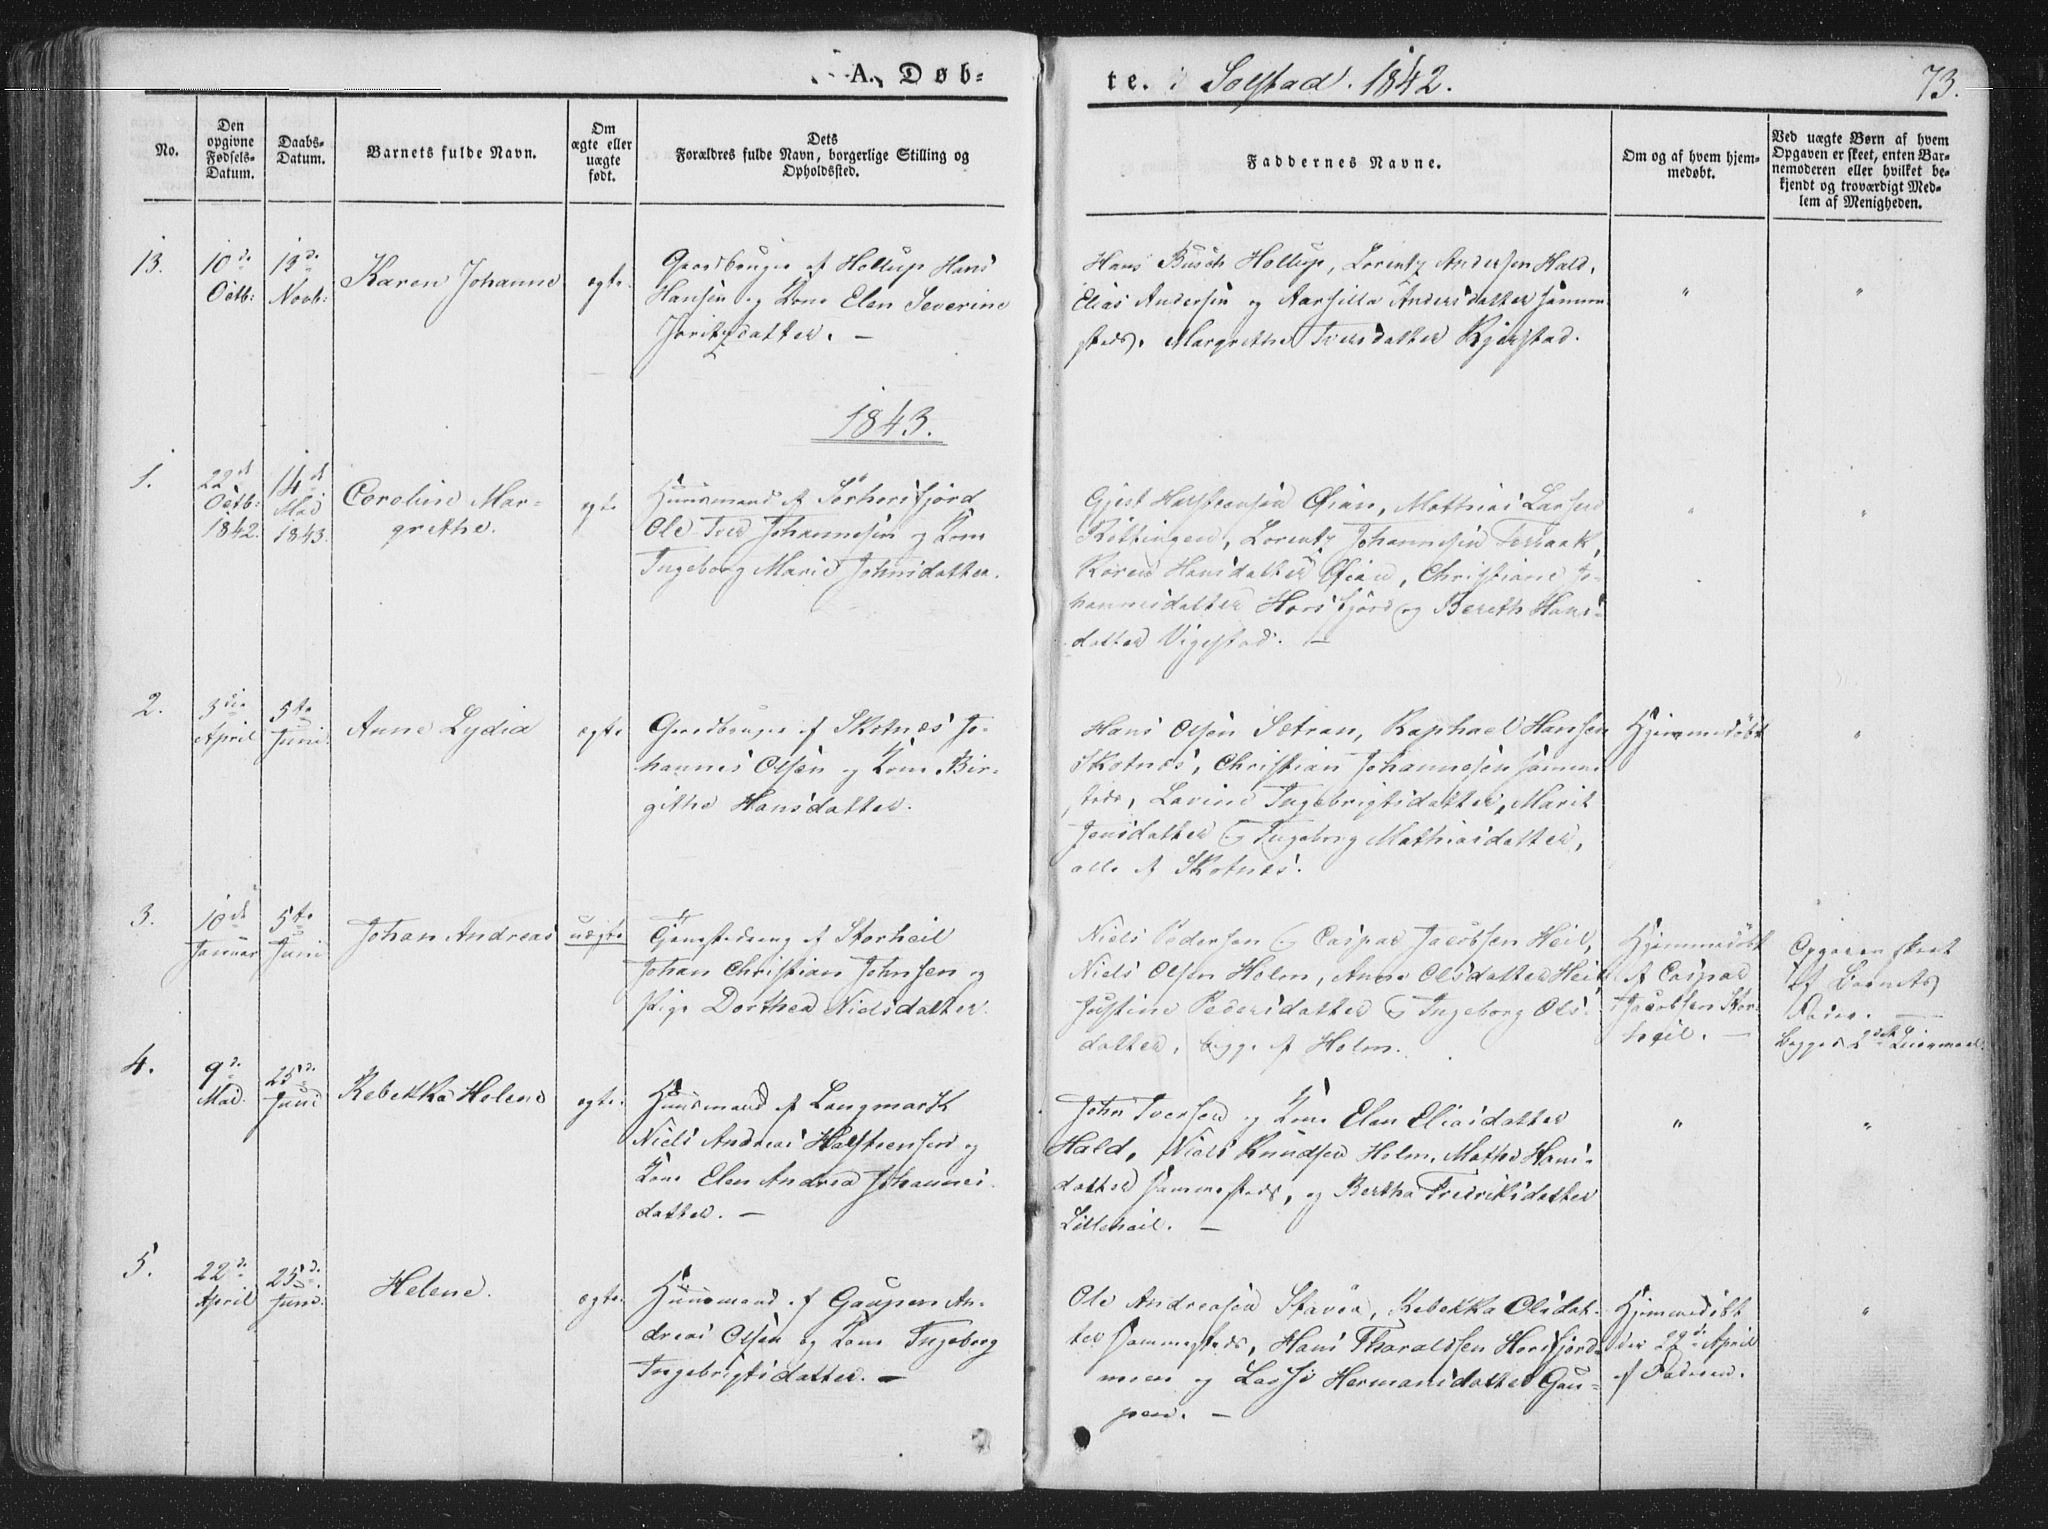 A. Døb-
te. i Solstad. 1842.
73.
No.
Den
opgivne
Fødsels-
Datum.
Daabs-
Datum.
Barnets fulde Navn.
Om
ægte eller
uægte
født.
Dets
Forældres fulde Navn, borgerlige Stilling og
Opholdssted.
Faddernes Navne.
Om og af hvem hjem-
medøbt.
Ved uægte Børn af hvem
Opgaven er skeet, enten Bar-
nemoderen eller hvilket be-
kjendt og troværdigt Med-
lem af Menigheden.
13.
10de
Octb:
13de
Novb:
Karen Johanne
ægte
Gaardbruger af Hollup Hans
Hansen og Kone Elen Severine
Joritzdatter. —
Hans Busch Hollup, Lorentz Andersen Hald,
Elias Andersen og Andersdatter samme-
steds. Margrethe Iversdatter Kjerstad.
"
"
1843.
1.
22de
Octb:
1842.
14de
Mai
1843.
Caroline Mar-
grethe.
ægte
Huusmand af Sørhorsfjord
Ole Iver Johannesen og Kone
Ingeborg Marie Johnsdatter.
Gjest Halstensen Øian, Mathias Larsen
Røttingen, Lorentz Johannesen Terraak,
Karen Hansdatter Øian, Christiane Jo-
hannesdatter Horsfjord og Bereth Hans-
datter Vigestad. —
"
"
2.
3die
April
5te
Juni.
Anne Lydia
ægte
Gaardbruger af Skotnes Jo-
hannes Olsen og Kone Bir-
githe Hansdatter.
Hans Olsen Sætran, Raphael Hansen
Skotnes, Christian Johannesen samme-
steds, Lavine Ingebrigtsdatter, Marit
Jensdatter og Ingeborg Mathiasdatter,
alle af Skotnes.
Hjemmedøbt
"
3.
10de
Januar
5te
Juni
Johan Andreas
uægte
Tjenestedreng af Storheil
Johan Christian Johnsen og
Pige Dorthea Nielsdatter.
Niels Pedersen og Caspar Jacobsen Heil,
Niels Olsen Holm, Anne Olsdatter Heil
Justine Pedersdatter og Ingeborg Ols-
datter, begge af Holm.
Hjemmedøbt
af Caspar
Jacobsen Stor-
heil. —
Opgaven skeet
af Barnets
Fader. —
Begges 2det Leiermaal.
4.
9de
Mai.
25de
Juni
Rebekka Helene
ægte.
Huusmand af Langmark
Niels Andreas Halstensen og
Kone Elen Andrea Johannes-
datter. —
John Iversen og Kone Elen Eliasdatter
Hald, Niels Knudsen Holm, Mathe Hans-
datter sammesteds, og Bertha Fredriksdatter
Lilleheil. —
"
"
5.
22de
April
25de
Juni.
Helene.
ægte.
Huusmand af Gaupen An-
dreas Olsen og Kone Ingeborg
Ingebrigtsdatter. —
Ole Andreasen Stavør, Rebekka Olsdat-
ter sammesteds, Hans Tharaldsen Horsfjord-
moen og Lassi Hermansdatter Gau-
pen. —
Hjemmedøbt
den 22de April
af Faderen.
"